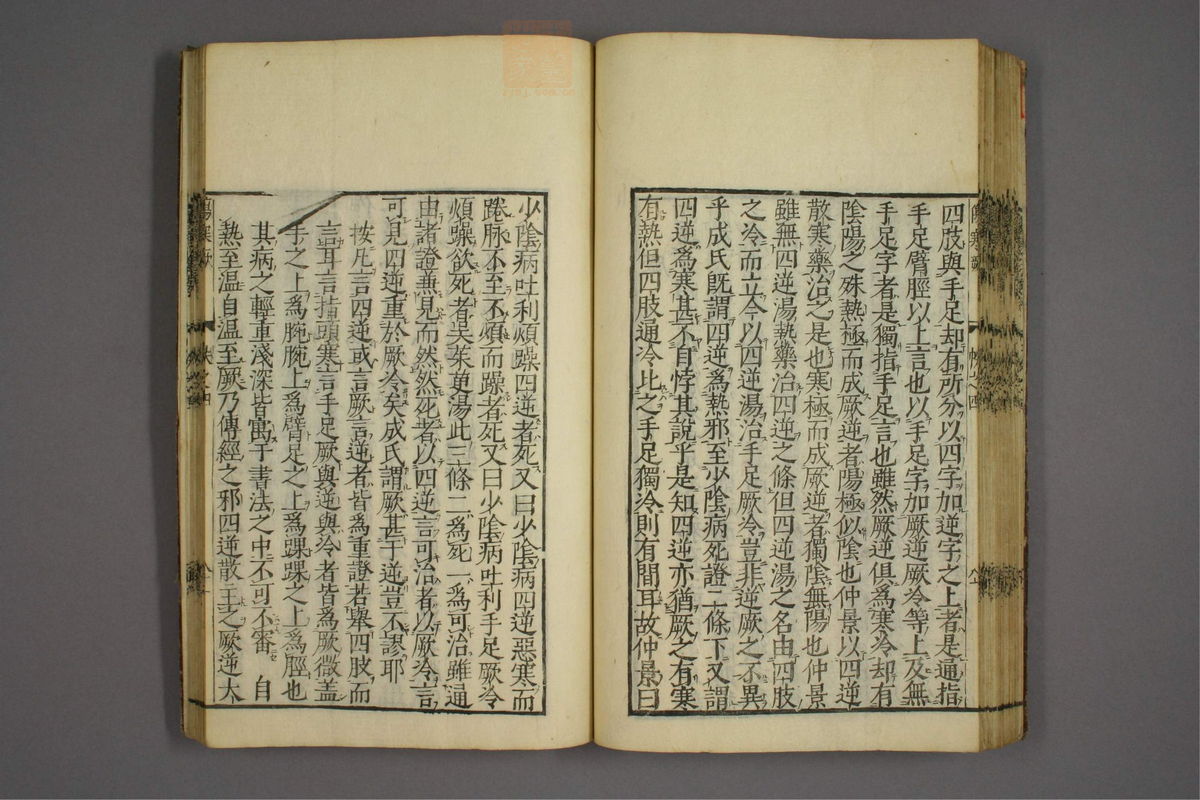 四肢與手足却有所分以四字加逆字之上者是通指
手足臂脛以上言也以手足字加厥逆厥冷等上及無
手足字者是獨指手足言也雖然厥逆俱爲寒冷却有
陰陽之殊熱極而成厥逆者陽極似陰也仲景以四逆
散寒藥治之是也寒極而成厥逆者獨陰無陽也仲景
雖無四逆湯熱藥治四逆之條但四逆湯之名由四肢
之冷而立今以四逆湯治手足厥冷豈非逆厥之不異
乎成氏既謂四逆爲熱邪至少陰病死證二條下又謂
四逆爲寒甚不自悖其說乎是知四逆亦猶厥之有寒
有熱但四肢通冷比之手足獨冷則有間耳故仲景曰
少陰病吐利煩躁四逆者死又曰少陰病四逆惡寒而
踡脉不至不煩而躁者死又曰少陰病吐利手足厥冷
煩躁欲死者吴茱萸湯此三條二爲死一爲可治雖通
由諸證兼見而然然死者以四逆言可治者以厥冷言
可見四逆重於厥冷矣成氏謂厥甚于逆豈不謬耶
按凡言四逆或言厥言逆者皆爲重證若舉四肢而
言耳言指頭寒言手足厥與逆與冷者皆爲厥微蓋
手之上爲腕腕上爲臂足之上爲踝踝之上爲脛也
其病之輕重淺深皆寓于書法之中不可不審 自
熱至温自温至厥乃傳經之邪四逆散主之厥逆大
傷寒歌